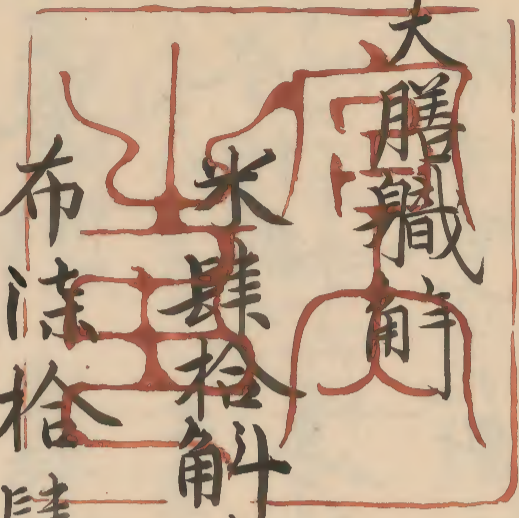 大膳職解
米肆拾斛
布漆拾肆